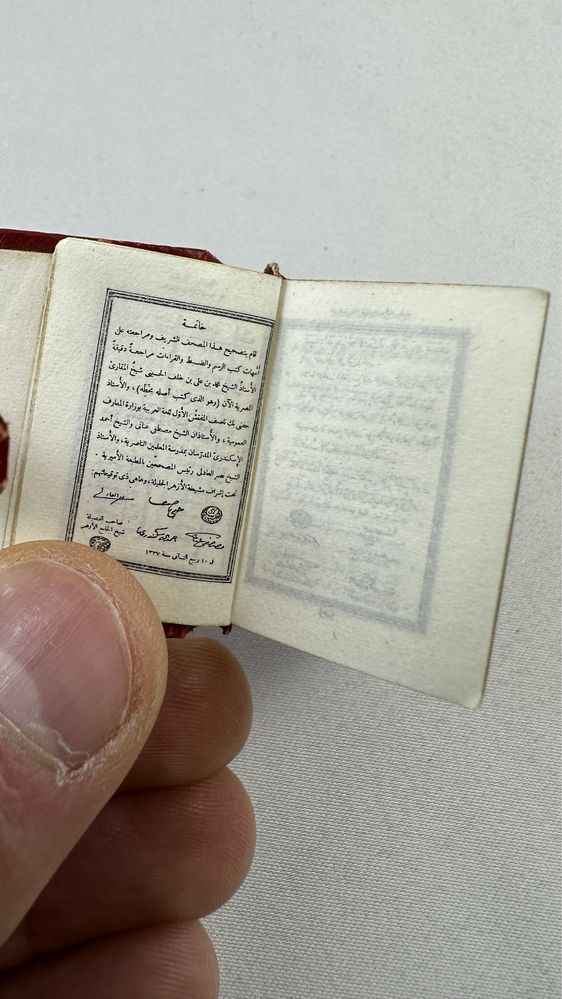 خاتمة
قام بتصحيح هذا المصحف الشريف ومراجعته على
أمهات كتب الرسم والضبط والقراءات مراجعةً دقيقةً
الأستاذُ الشيخ محمد بن علي بن خلف الحسيني شيخُ المقارئ
المصرية الآن (وهو الذى كتب أصله بخطّه)، والأستاذ
حفنى بك ناصف المفتش الأوّل للغة العربية بوزارة المعارف
العمومية، والأستاذان الشيخ مصطفى عنانى والشيخ أحمد
الإسكندرىّ المدرّسان بمدرسة المعلمين الناصرية، والأستاذ
الشيخ نصر العادلى رئيس المصححين بالمطبعة الأميرية
تحت إشراف مشيخة الأزهر الجليلة، وهاهى ذى توقيعاتهم:
صاحب الفضيلة
شيخ الجامع الأزهر
فى ١٠ ربيع الثانى سنة ١٣٣٧